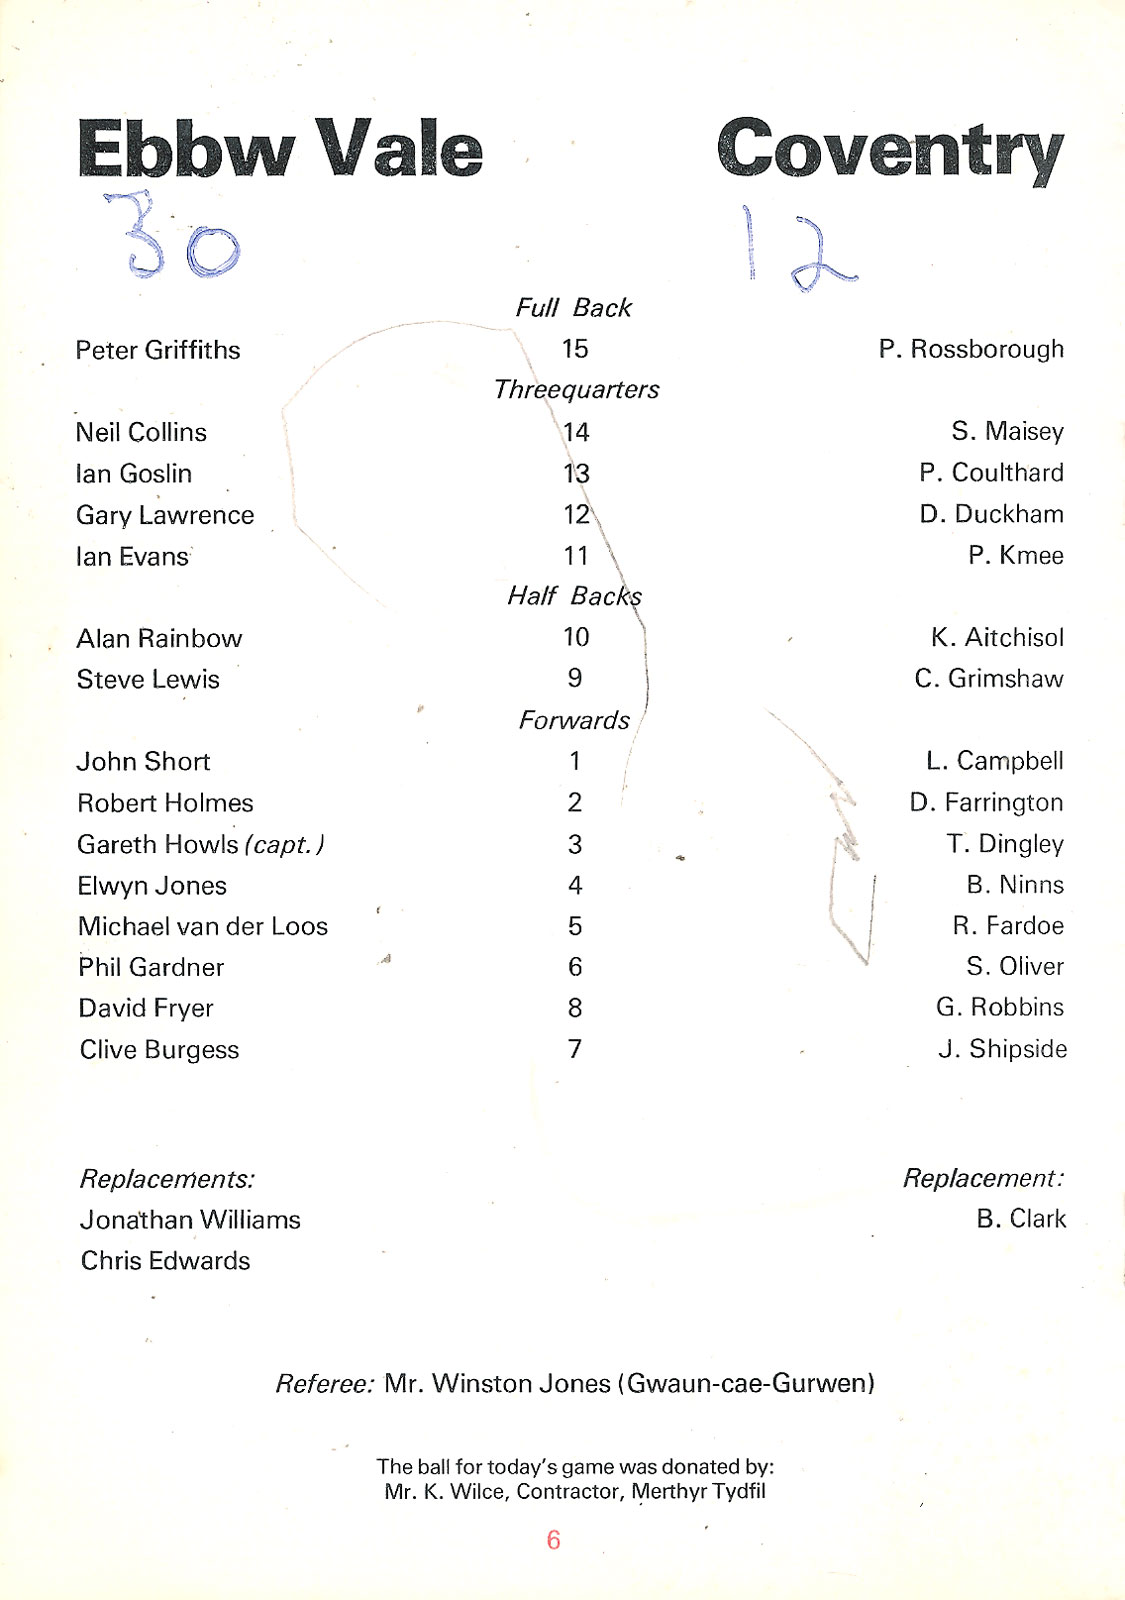 Ebbw Vale Coventry
30 12
Full Back
Peter Griffiths 15 P. Rossborough
Threequarters
Neil Collins 14 S. Maisey
Ian Goslin 13 P. Coulthard
Gary Lawrence 12 D. Duckham
Ian Evans 11 P. Kmee
Half Backs
Alan Rainbow 10 K. Aitchisol
Steve Lewis 9 C. Grimshaw
Forwards
John Short 1 L. Campbell
Robert Holmes 2 D. Farrington
Gareth Howls (capt.) 3 T. Dingley
Elwyn Jones 4 B. Ninns
Michael van der Loos 5 R. Fardoe
Phil Gardner 6 S. Oliver
David Fryer 8 G. Robbins
Clive Burgess 7 J. Shipside
Replacements: Replacement:
Jonathan Williams B. Clark
Chris Edwards
Referee: Mr. Winston Jones (Gwaun-cae-Gurwen)
The ball for today's game was donated by:
Mr. K. Wilce, Contractor, Merthyr Tydfil
6